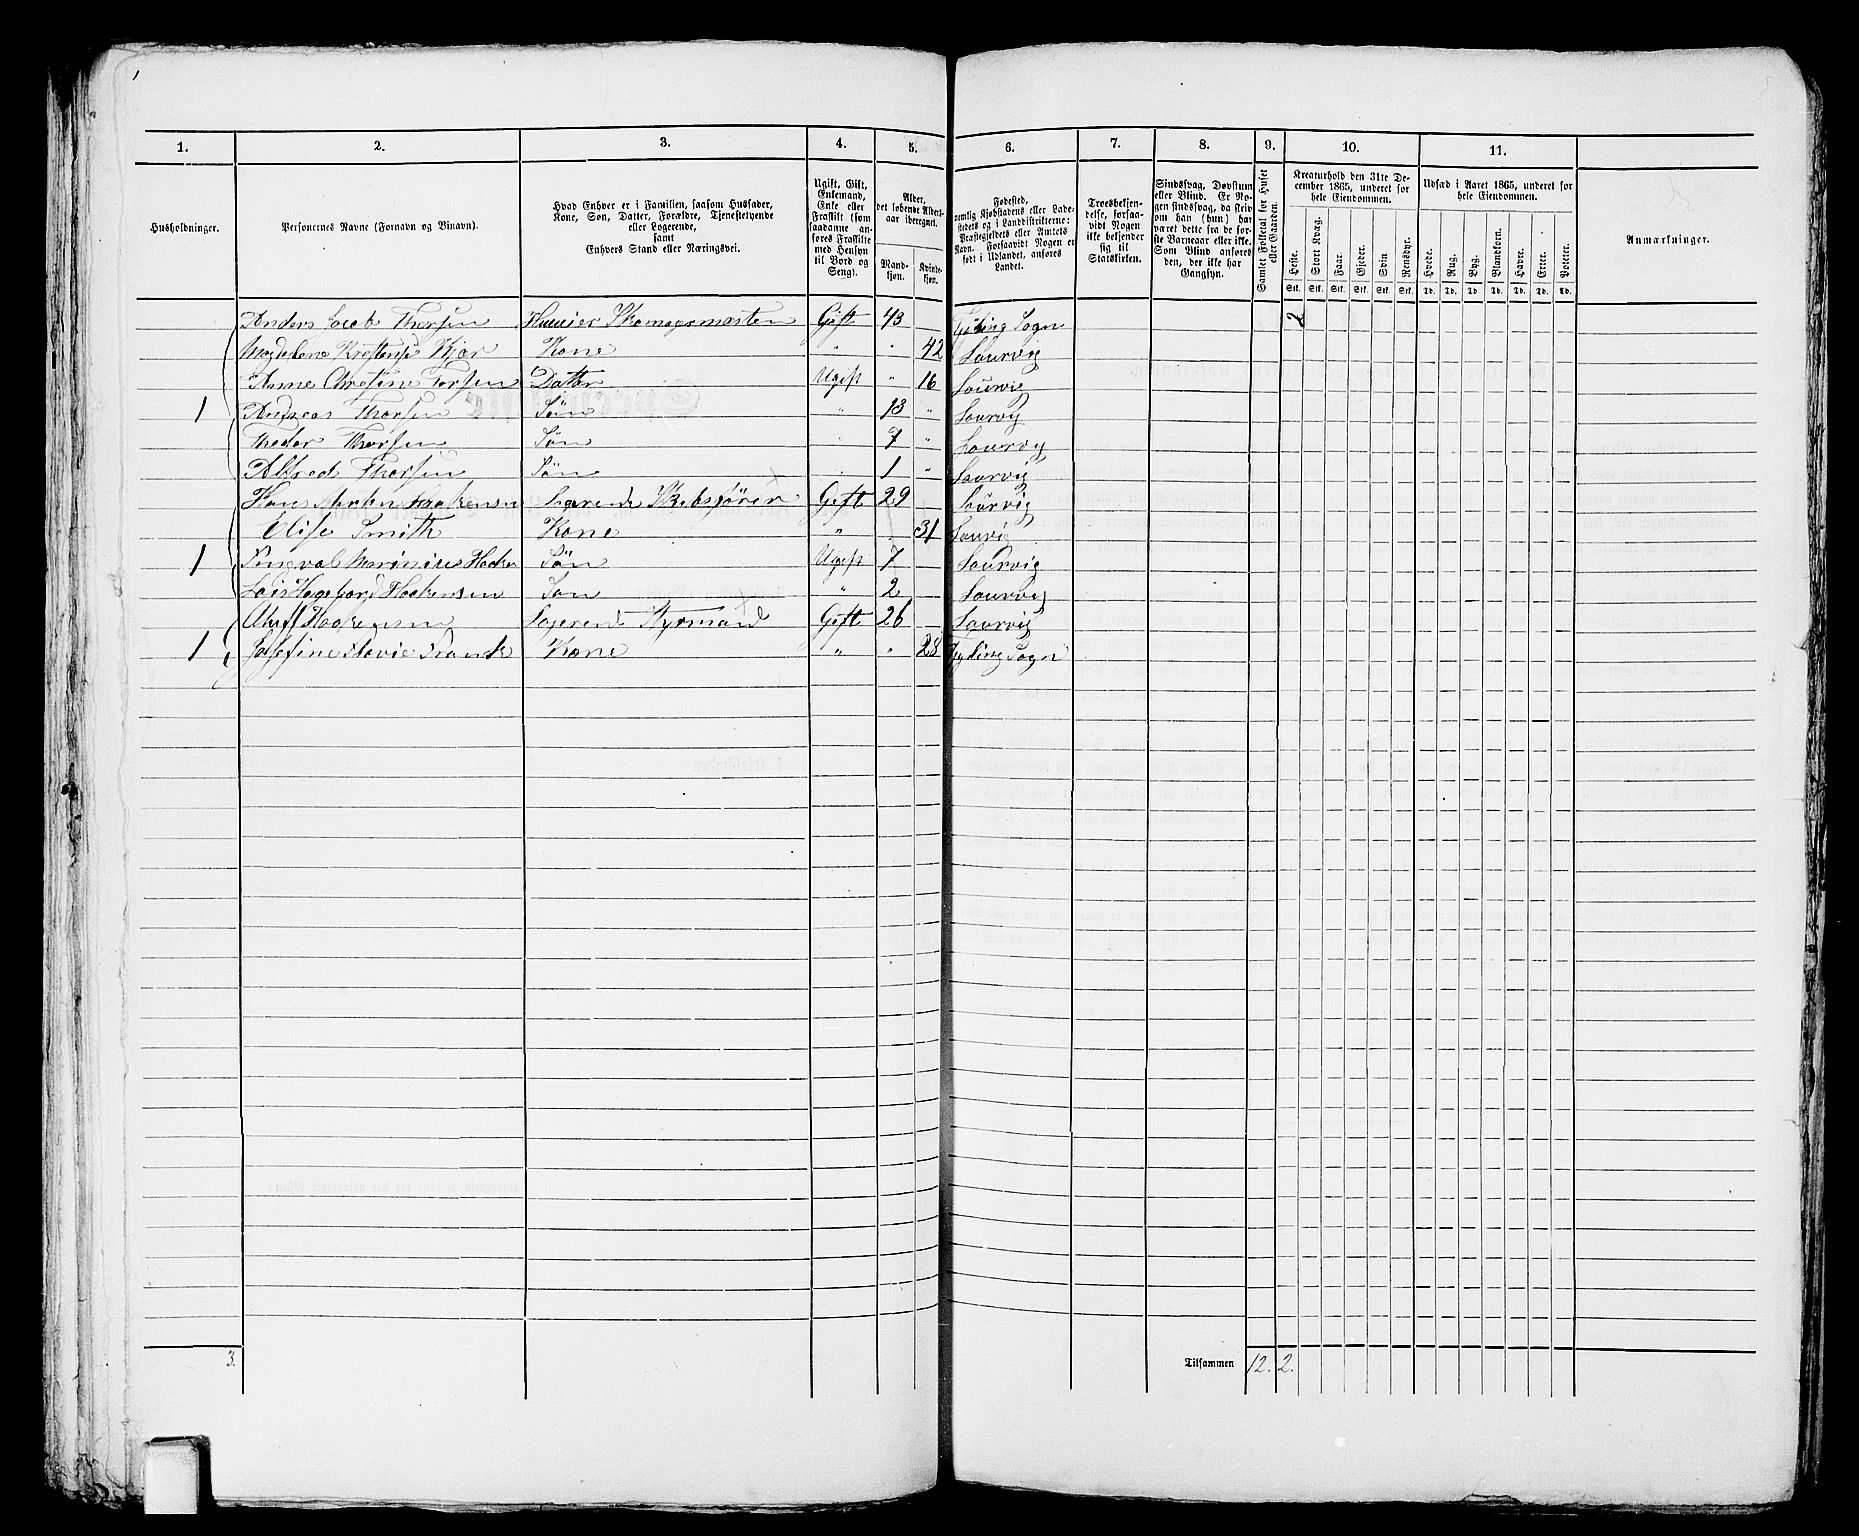 1. 2. 3. 4. 5. 6. 7. 8. 9. 10. 11.
Husholdninger.
Personernes Navne (Fornavn og Binavn).
Hvad Enhver er i Familien, saasom Husfader,
Kone, Søn, Datter, Forældre, Tjenestetyende
eller Logerende,
samt
Enhvers Stand eller Næringsvei.
Ugift, Gift,
Enkemand,
Enke eller
Fraskilt (som
saadanne an-
føres Fraskilte
med Hensyn
til Bord og
Seng).
Alder,
det løbende Alders-
aar iberegnet.
Mand-
kjøn.
Kvinde-
kjøn.
Fødested,
nemlig Kjøbstadens eller Lade-
stedets og i Landdistrikterne:
Præstegjeldets eller Amtets
Navn. Forsaavidt Nogen er
født i Udlandet, anføres
Landet.
Troesbekjen-
delse, forsaa-
vidt Nogen
ikke bekjender
sig til
Statskirken.
Sindssvag, Døvstum
eller Blind. Er No-
gen sindssvag, da skriv
om han (hun) har
været dette fra de før-
ste Barneaar eller ikke.
Som Blind anføres
den, der ikke har
Gangsyn.
Samlet Folketal for Huset
eller Gaarden.
Kreaturhold den 31te De-
cember 1865, underet for
hele Eiendommen.
Heste. Stort Kvæg. Faar. Gjeder. Svin Rensdyr.
Stk. Stk. Stk. Stk. Stk. Stk.
Udsæd i Aaret 1865, underet for
hele Eiendommen.
Hvede. Rug. Byg. Blandkorn. Havre. Erter. Poteter.
Td. Td. Td. Td. Td. Td. Td.
Anmærkninger.
Anders Jacob Thorsen Huuseier Skomagermæster Gift 43 Tjøling Sogn 2
Magdelene Kristense Kjær Kone " " 42 Laurvig
Anne Christine Torsen Datter Ugift " 16 Laurvig
1 Andreas Thorsen Søn " 13 " Laurvig
Theder Thorsen Søn " 7 " Laurvig
Alfred Thorsen Søn " 1 " Laurvig
Hans Haakensen Logerende Skibsfører Gift 29 Laurvig
Elise Smith Kone " 31 Laurvig
1 Marinius Haaken Søn Ugift 7 Laurvig
Hagbard Haakensen Søn " 2 Laurvig
Oluf Haakensen Logerende Styrmand Gift 26 Laurvig
1 Josefine Kone " " 28 Tjøling Sogn
3. Tilsammen 12. 2.